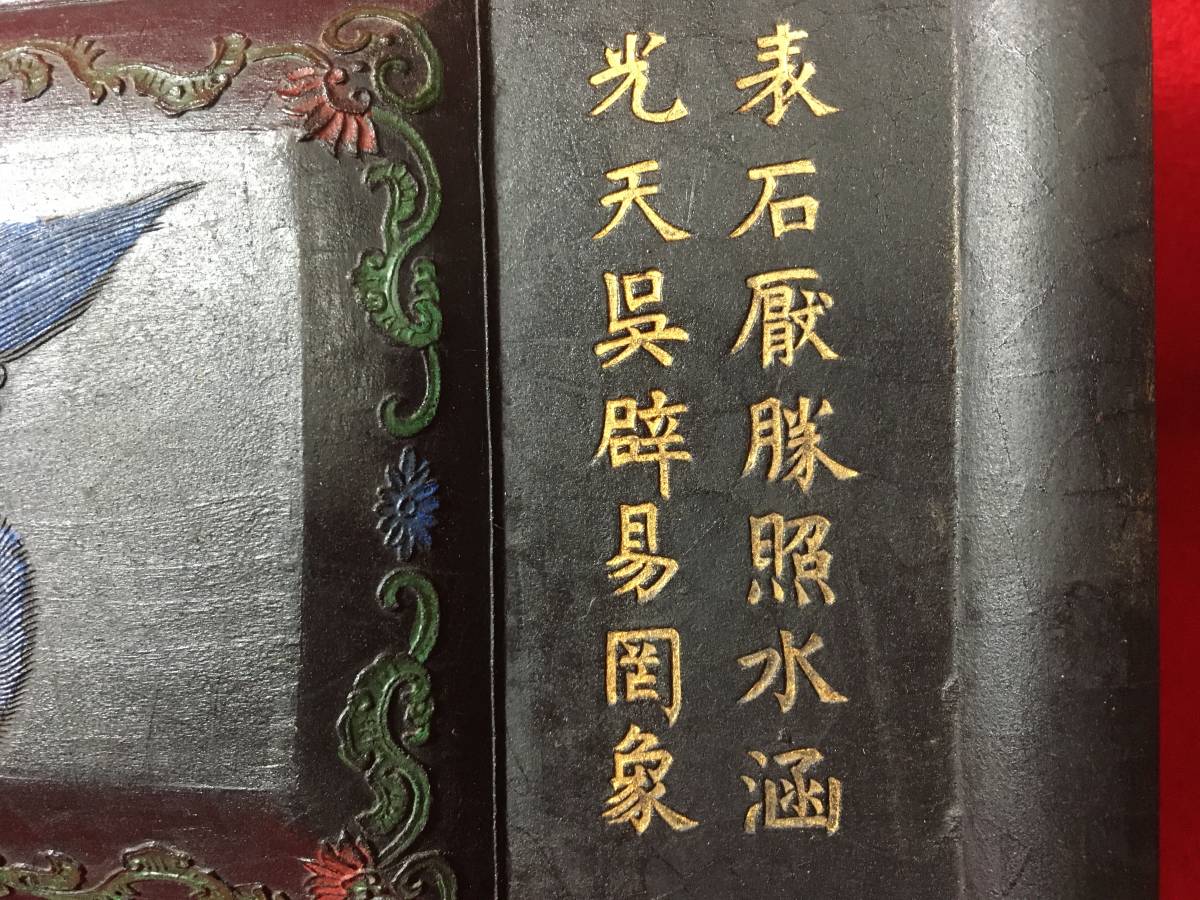 表石厭勝照水涵
光天吳辟易罔象